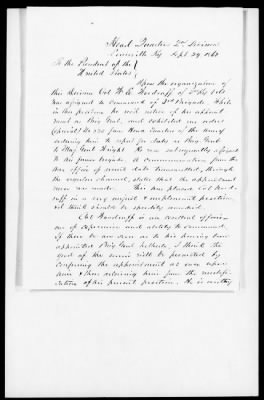 Head Quarters 2d Division
Louisville Ky Sept. 29, 1862
To the President of the
United States
Upon the organization of
this division Col W. E. Woodruff of 2d Ky Vols
was assigned to command of 3rd Brigade. While
in this position, he recd notice of his appoint
ment as Brig Genl, and exhibited an order
(special) No from Head Quarters of the Army
ordering him to report for duty as Brig Genl
to Maj Genl Wright. He was subsequently assigned
to his former brigade. A communication from the
War office of recent date transmitted, through
the regular channel, states that the appointment
was not made. This has placed Col Wood-
ruff in a very awkward & unpleasant position,
& I think should be speedily remedied.
Col Woodruff is an excellent officer -
one of experience and ability to command.
If there be an error as to his having been
appointed Brig Genl hitherto, I think the
good of the service will be promoted by
confirming the appointment as now upon
him & thus relieving him from the mortifi-
cation of his present position. He is worthy